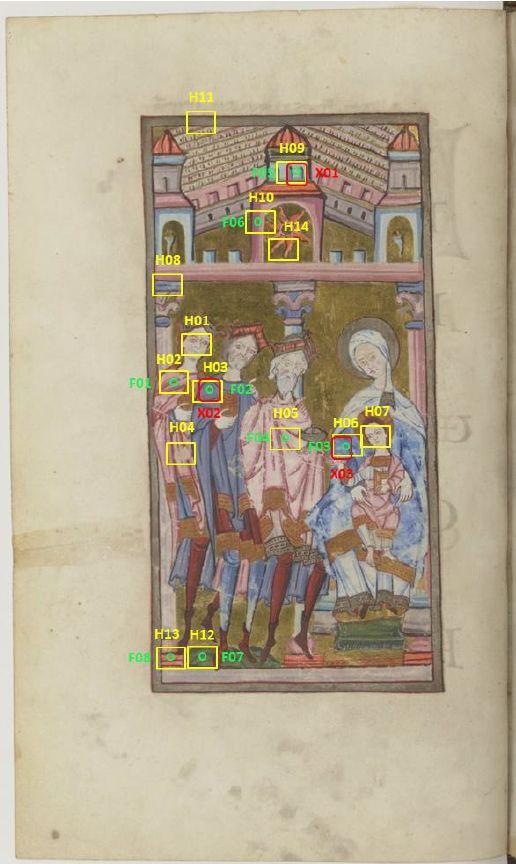 H11
H09
F05 X01
H10
F06
H14
H08
H01
H02 H03
F01 F02
X02
H04 H05 H06 H07
F04 F03
X03
H13 H12
F08 F07